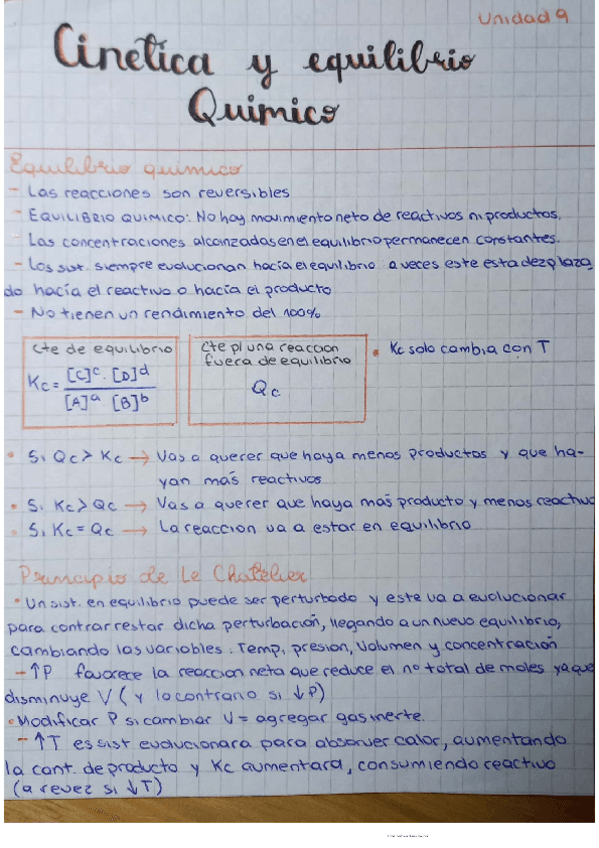 Unidad 9
Cinetica y equilibrio
Quimico
Equilibrio quimico
- Las reacciones son reversibles
- EQUILIBRIO QUIMICO: No hay movimiento neto de reactivos ni productos.
Las concentraciones alcanzadas en el equilibrio permanecen constantes.
- Los sist. siempre evolucionan hacia el equilibrio a veces este esta dezplaza
do hacia el reactivo o hacia el producto
- No tienen un rendimiento del 100%
Cte de equilibrio
Kc = [C]c · [D]d
[A]a · [B]b
Cte p/ una reaccion
fuera de equilibrio
Qc
• Kc solo cambia con T
• Si Qc > Kc → Vas a querer que haya menos productos y que ha-
yan más reactivos
• Si Kc > Qc → Vas a querer que haya mas producto y menos reactivo
• Si Kc = Qc → La reaccion va a estar en equilibrio
Principio de Le Chatelier
• Un sist. en equilibrio puede ser perturbado y este va a evolucionar
para contrarrestar dicha perturbación, llegando a un nuevo equilibrio,
cambiando las variables. Temp, presion, volumen y concentración
- ↑P favorece la reaccion neta que reduce el nº total de moles ya que
disminuye V (y lo contrario si ↓P)
• Modificar P si cambiar V = agregar gas inerte.
- ↑T es sist evolucionara para absorver calor, aumentando
la cant. de producto y Kc aumentara, consumiendo reactivo
(a revez si ↓T)